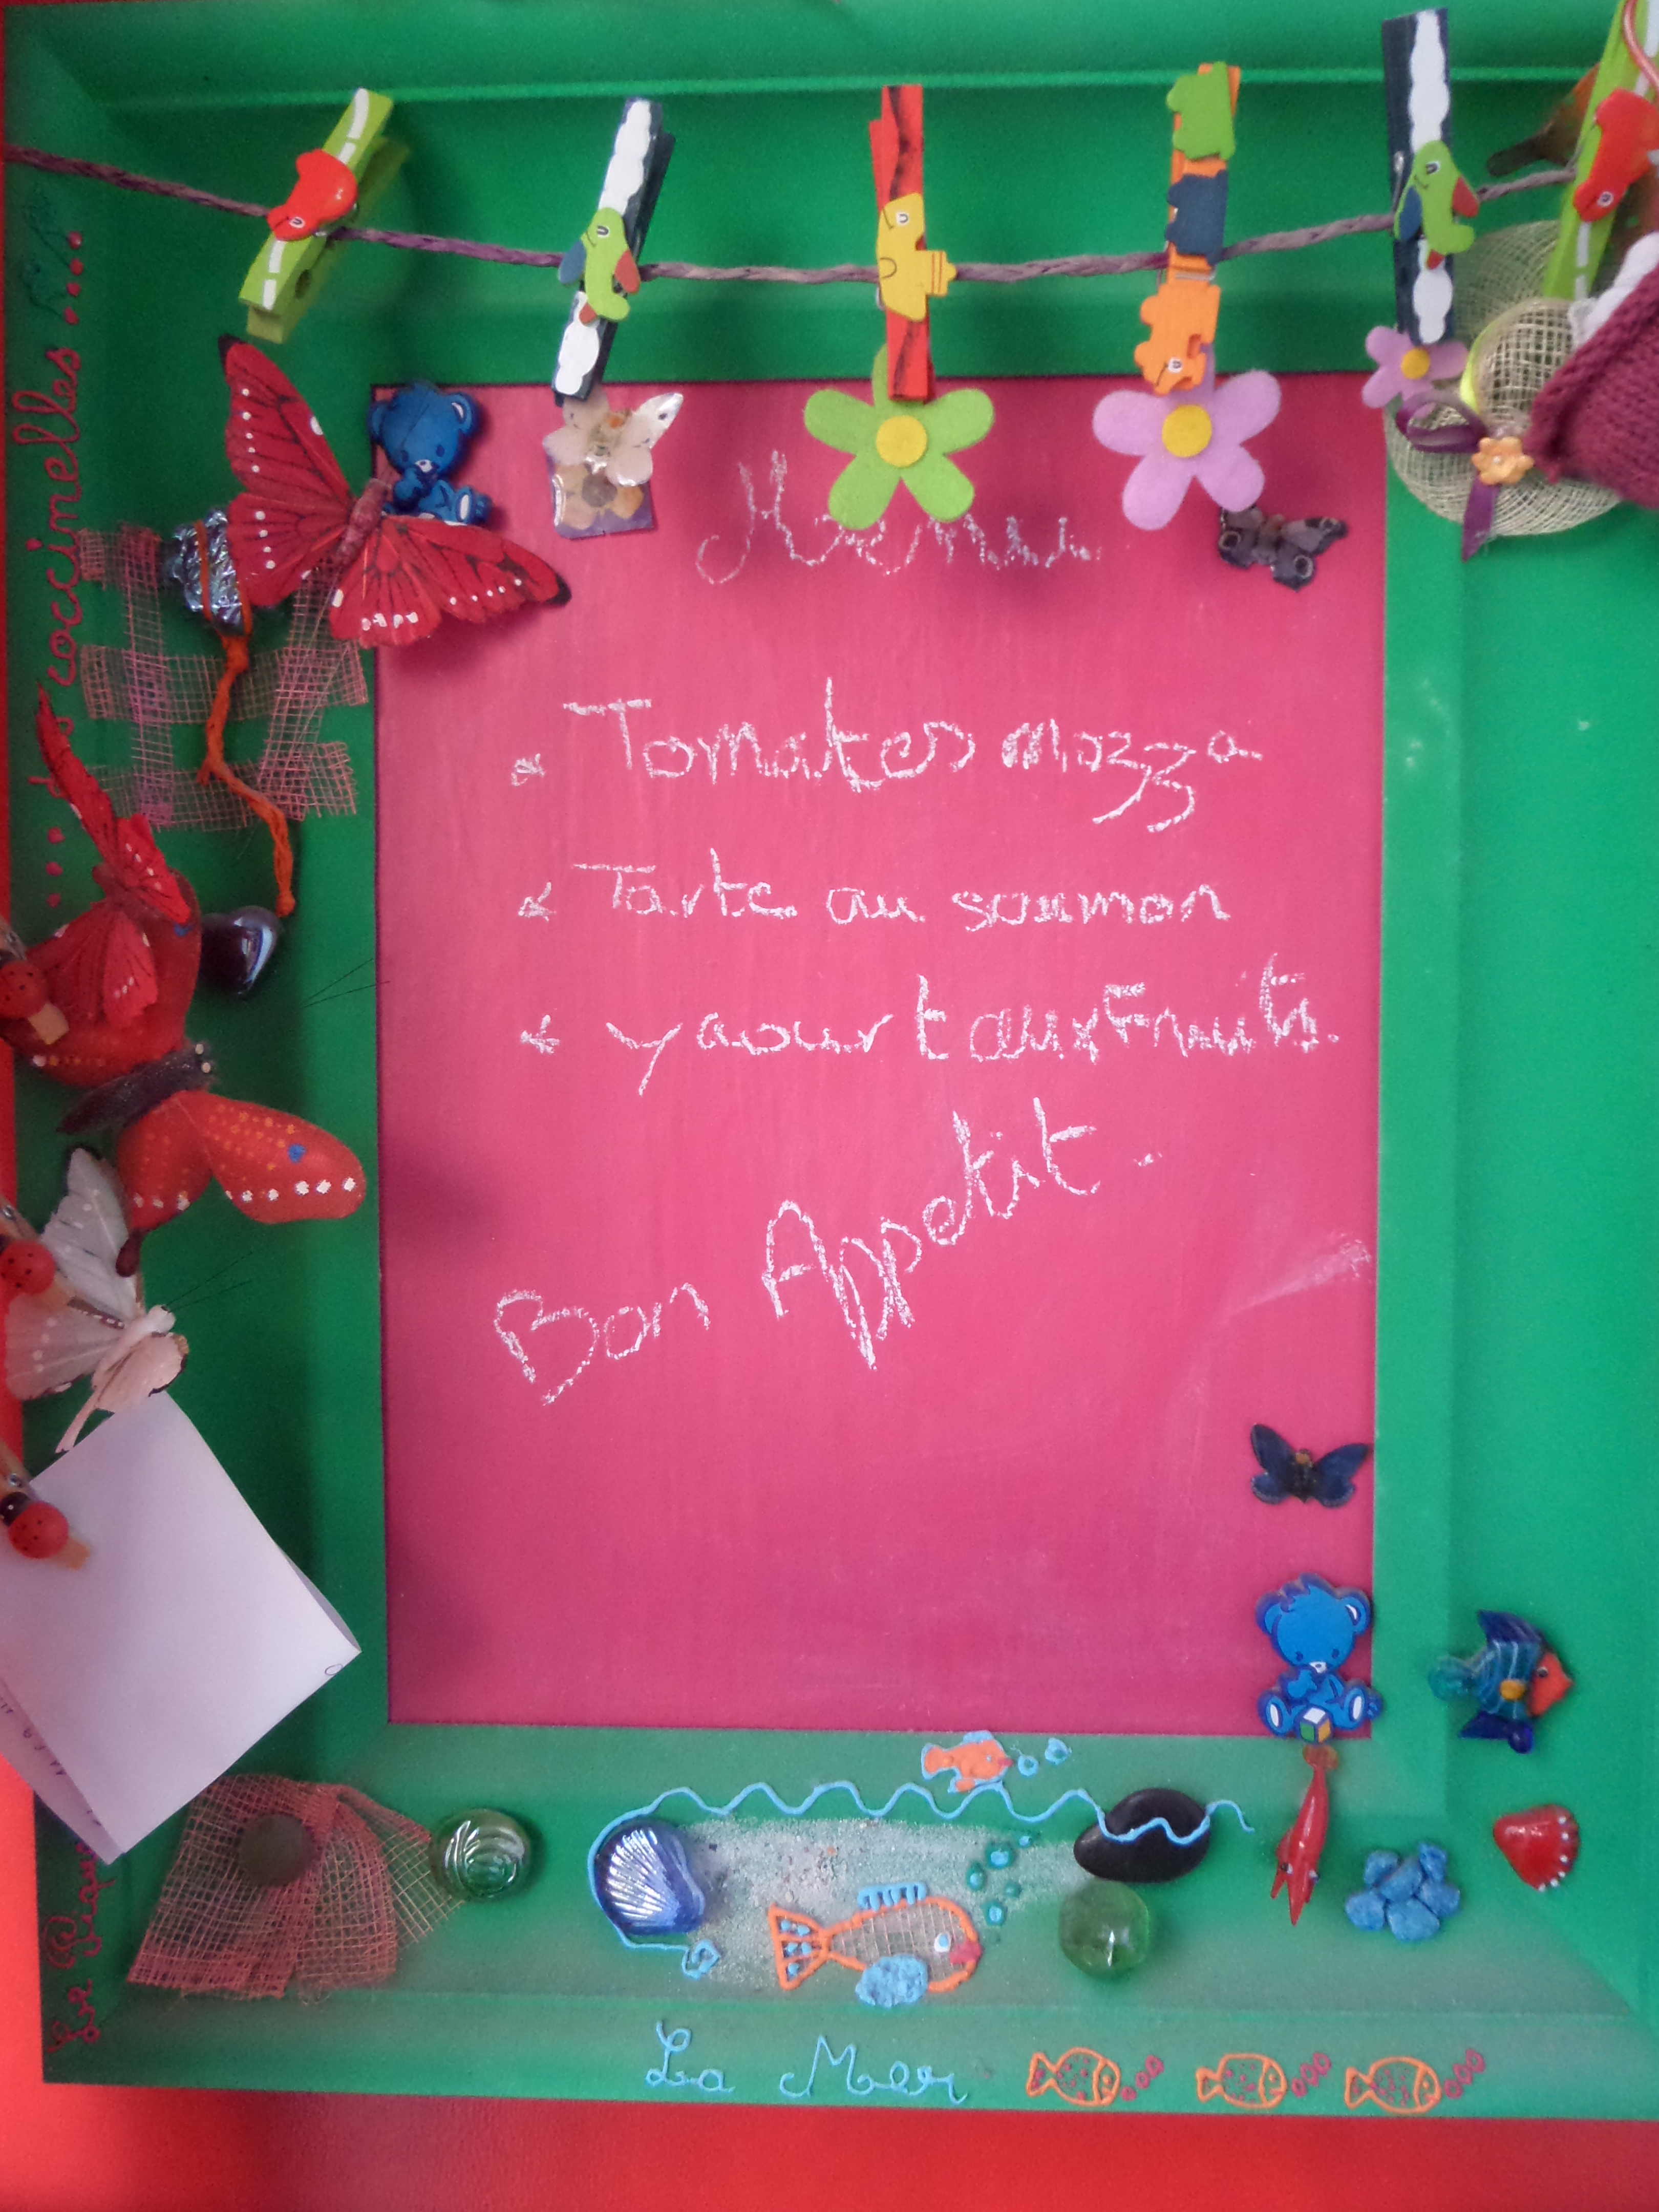 Menu
* Tomates mozza
* Tarte au saumon
* yaourt aux Fruits.
Bon Appetit.
La Mer
Le Pique
... des coccinelles ....